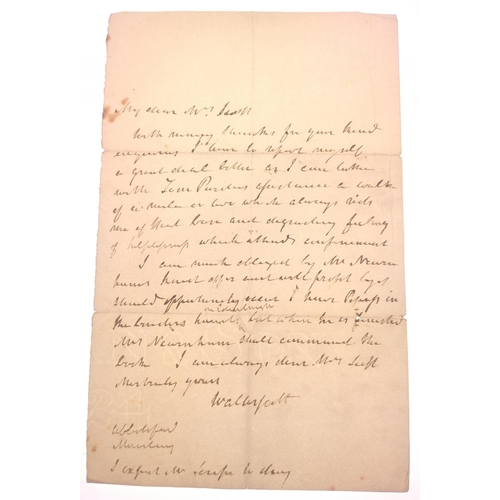 My dear Mrs Scott
With many thanks for your kind
enquiries I have to report myself
a great deal better as I can take
with Tom Purdies assistance a walk
of a mile or two which always rids
me of that base and degrading feeling
of helplessness which attends confinement
I am much obliged by Mr Newn
hams kind offer and will profit by it
should opportunity occur I have Pepys in
the binders hands but when he is
in Edinburgh
Mrs Newnham shall command the
book I am always dear Mrs Scott
yours
Walter Scott
Abbotsford
I expect Mr to day